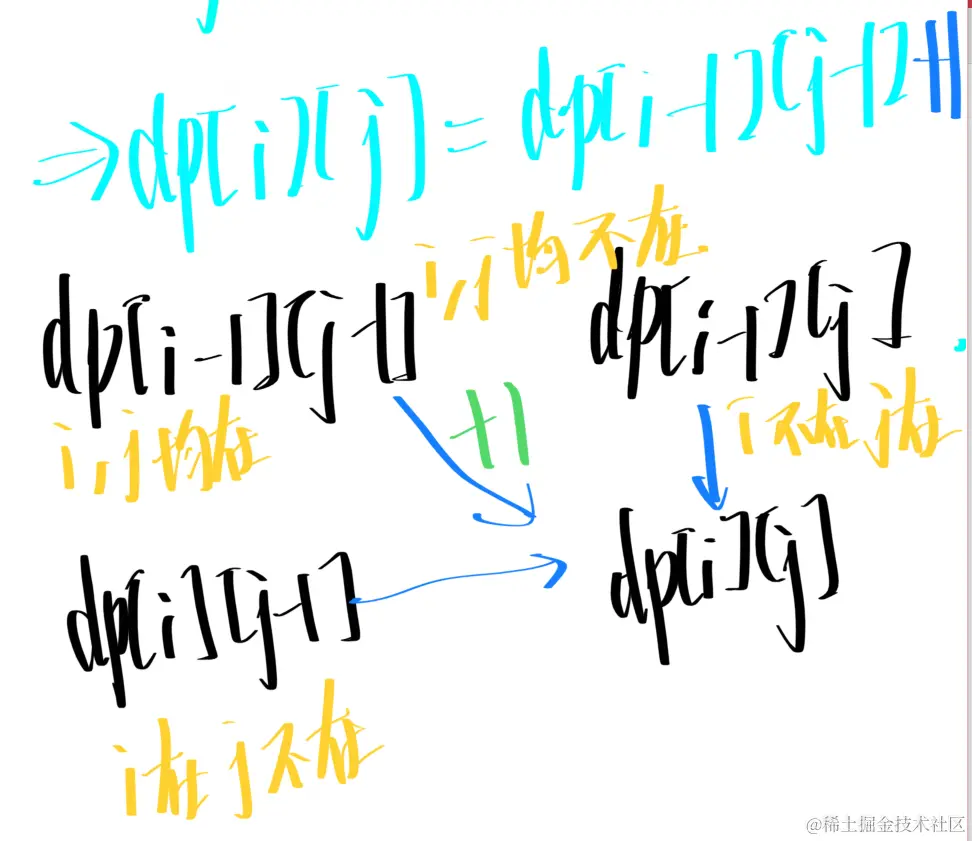 ⇒dp[i][j]=dp[i-1][j-1]+1
i,j均不在
dp[i-1][j-1]
dp[i-1][j]
i,j均在
+1
i不在j在
dp[i][j-1]
dp[i][j]
i在j不在
@稀土掘金技术社区